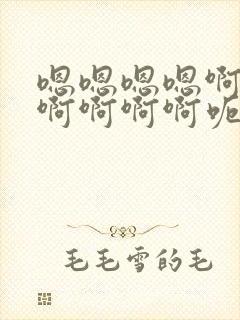 嗯嗯嗯嗯啊
啊啊啊啊呃
毛毛雪的毛